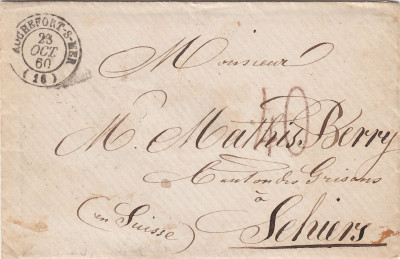 ROCHEFORT-S-MER
23
OCT
60
(16)
Monsieur
40
M. Mathis. Berry
Canton des Grisons
à
(en Suisse)
Schiers